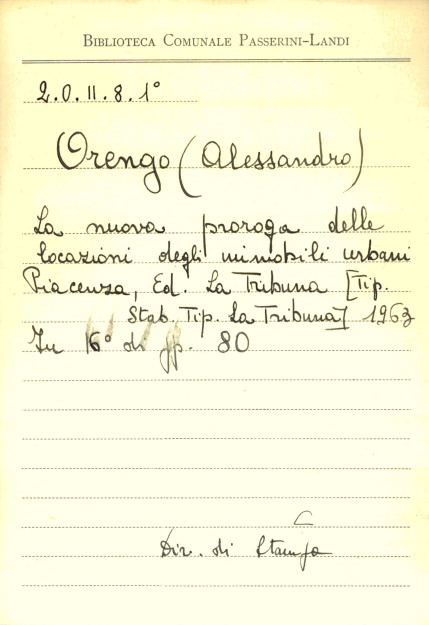 BIBLIOTECA COMUNALE PASSERINI-LANDI
2.O.II.8.1°
Orengo (Alessandro)
La nuova proroga delle
locazioni degli immobili urbani
Piacenza, Ed. La Tribuna [Tip.
Stab. Tip. La Tribuna] 1963
In 16° di pp. 80
Dir. di Stampa